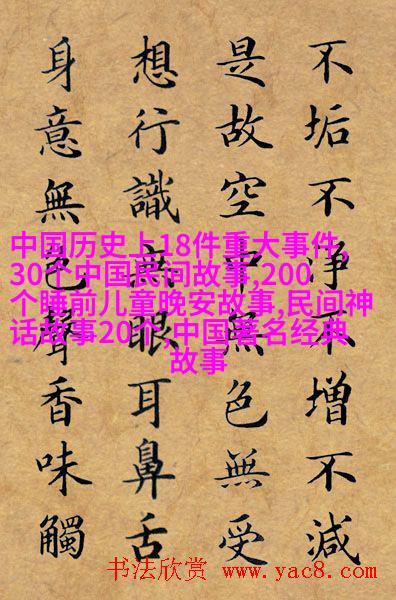 不垢不淨不增不減
是故空中無色無受
想行識無眼耳鼻舌
身意無色聲香味觸
中国历史上18件重大事件,
30个中国民间故事,200
个睡前儿童晚安故事,民间神
话故事20个,中国著名经典
故事
书法欣赏 www.yac8.com